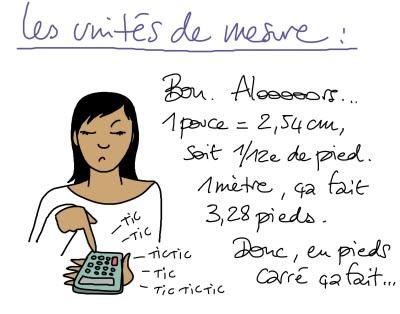 les unités de mesure :
Bon. Alooooors...
1 pouce = 2,54 cm,
soit 1/12e de pied.
1 mètre, ça fait
3,28 pieds.
Donc, en pieds
carré ça fait...
- TIC
- TIC
- TIC TIC
- TIC
- TIC TIC TIC